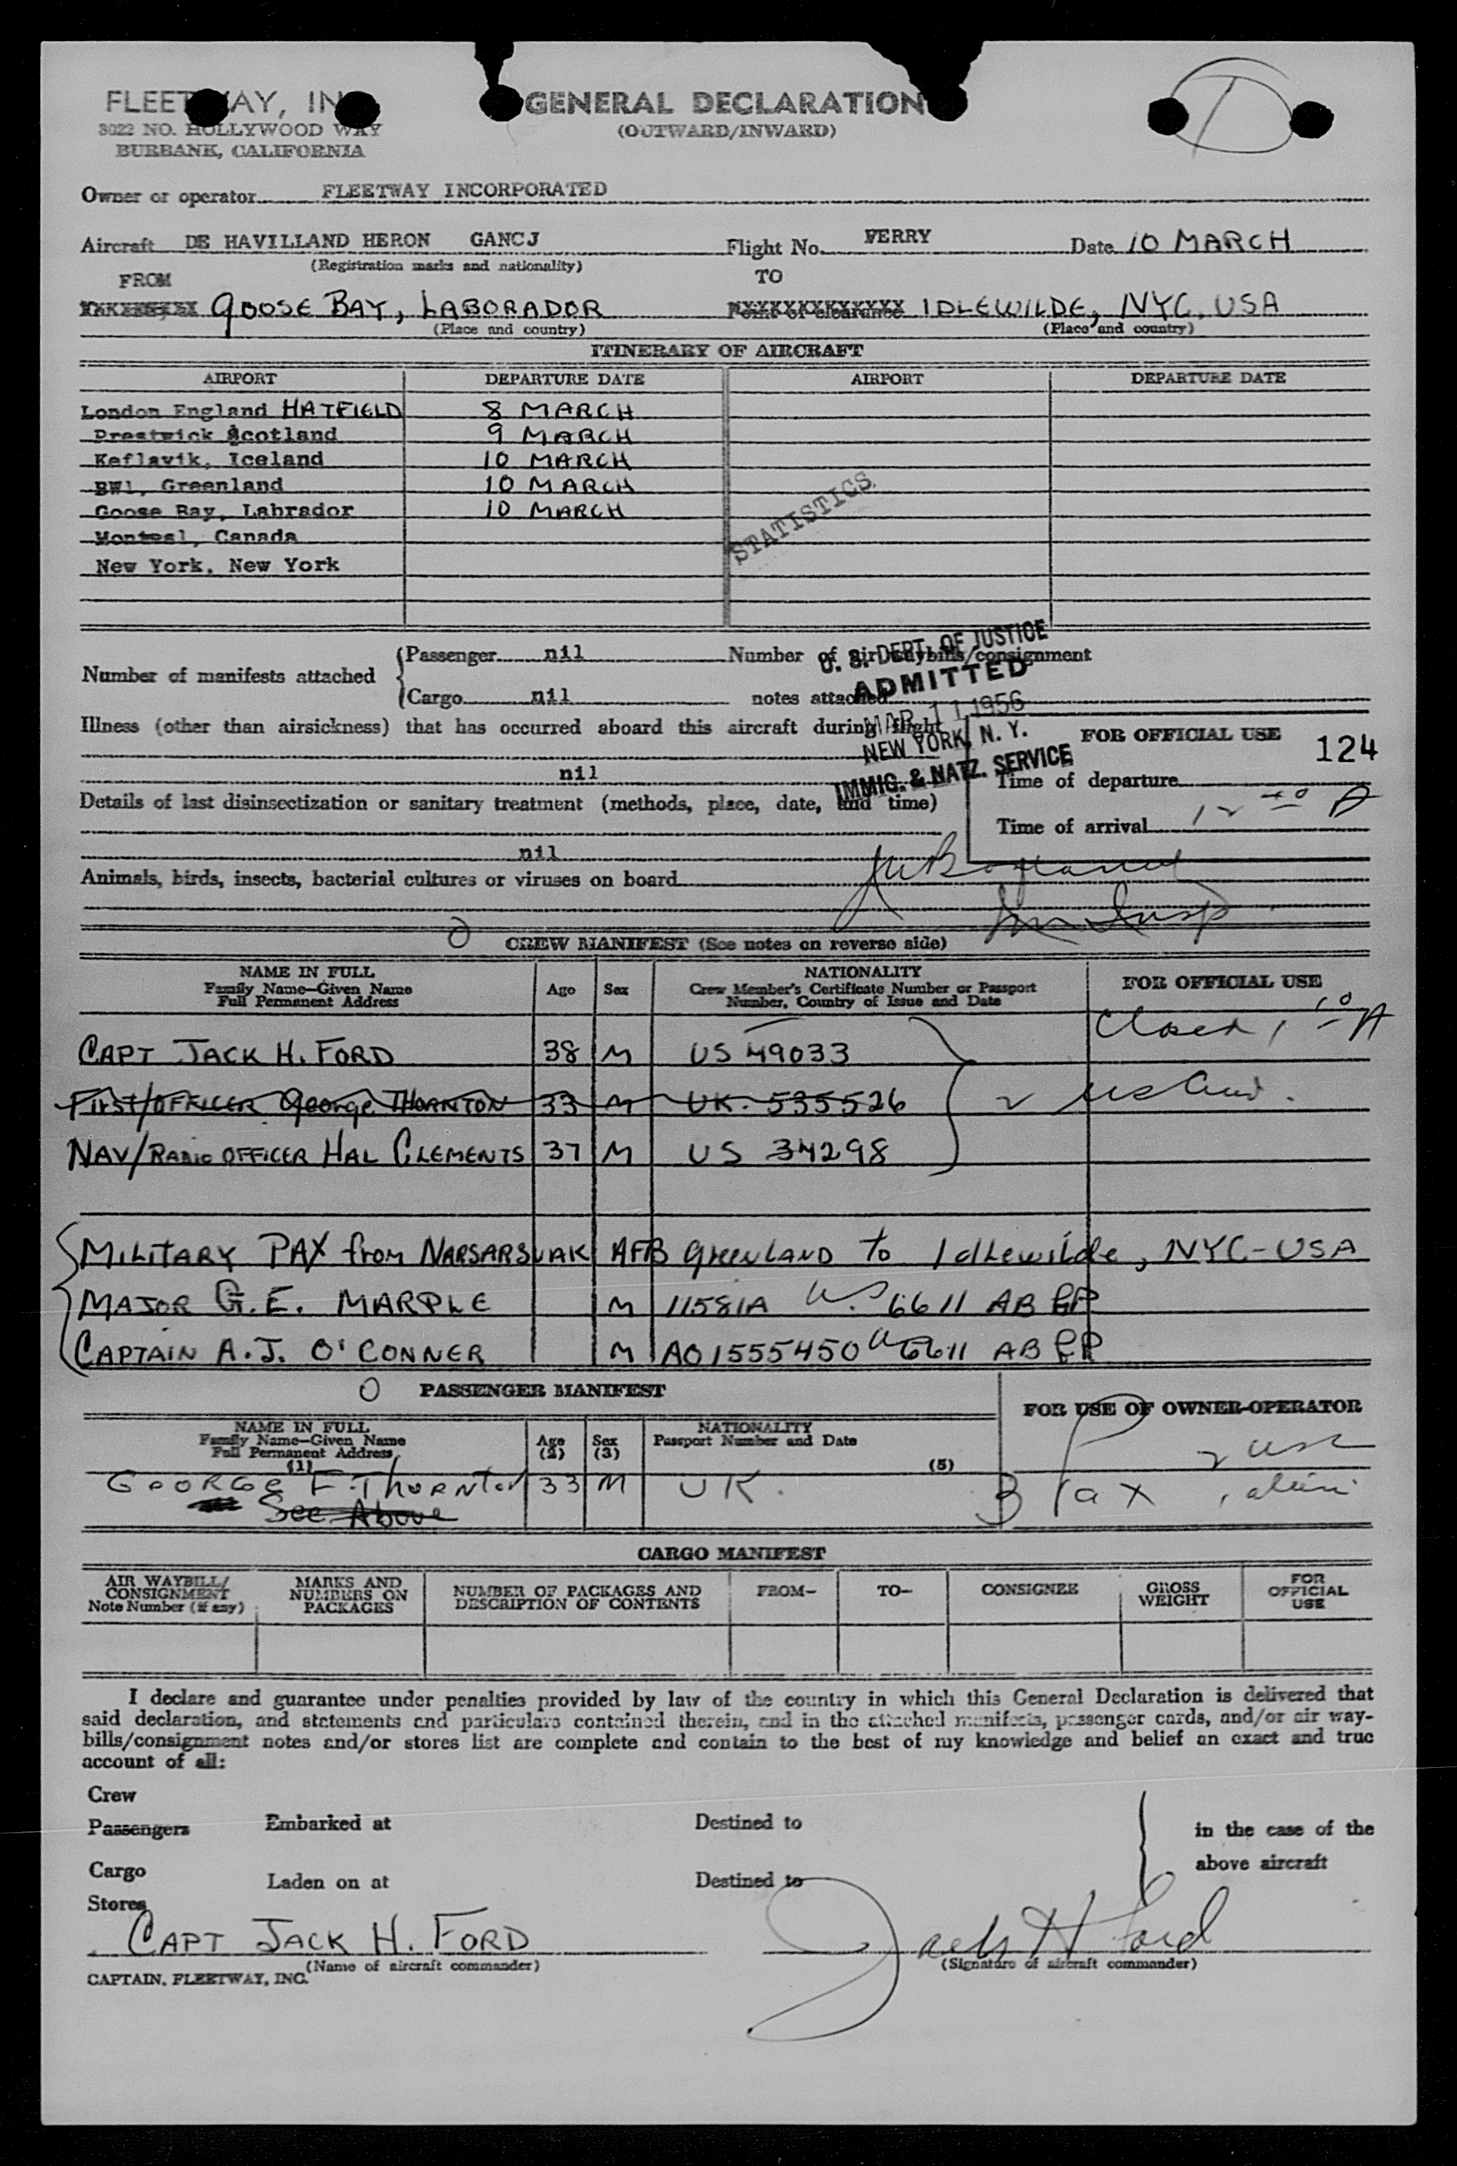 FLEETWAY, INC
3022 NO. HOLLYWOOD WAY
BURBANK, CALIFORNIA
GENERAL DECLARATION
(OUTWARD/INWARD)
Owner or operator FLEETWAY INCORPORATED
Aircraft DE HAVILLAND HERON GANCJ Flight No. FERRY Date 10 MARCH
(Registration marks and nationality)
FROM GOOSE BAY, LABORADOR TO IDLEWILDE, NYC, USA
(Place and country) (Place and country)
ITINERARY OF AIRCRAFT
AIRPORT DEPARTURE DATE AIRPORT DEPARTURE DATE
London England HATFIELD 8 MARCH
Prestwick Scotland 9 MARCH
Keflavik, Iceland 10 MARCH
BW1, Greenland 10 MARCH
Goose Bay, Labrador 10 MARCH
Montreal, Canada
New York, New York
STATISTICS
Number of manifests attached
Passenger nil Number of air waybills/consignment
Cargo nil notes attached
U. S. DEPT. OF JUSTICE
ADMITTED
MAR 11 1956
NEW YORK, N. Y.
IMMIG. & NATZ. SERVICE
Illness (other than airsickness) that has occurred aboard this aircraft during flight
nil
FOR OFFICIAL USE 124
Time of departure
Time of arrival 12 40 A
Details of last disinsectization or sanitary treatment (methods, place, date, and time)
nil
Animals, birds, insects, bacterial cultures or viruses on board
CREW MANIFEST (See notes on reverse side)
NAME IN FULL
Family Name—Given Name
Full Permanent Address
Age Sex
NATIONALITY
Crew Member's Certificate Number or Passport
Number, Country of Issue and Date
FOR OFFICIAL USE
CAPT JACK H. FORD 38 M US 49033
First/OFFICER George THORNTON 33 M UK. 535526
NAV/RADIO OFFICER HAL CLEMENTS 37 M US 34298
MILITARY PAX from NARSARSUAK AFB GREENLAND to Idlewilde, NYC-USA
MAJOR G. E. MARPLE M 11581A US 6611 AB GP
CAPTAIN A. J. O'CONNER M AO1555450 US 6611 AB GP
PASSENGER MANIFEST
FOR USE OF OWNER-OPERATOR
NAME IN FULL
Family Name—Given Name
Full Permanent Address
(1)
Age
(2)
Sex
(3)
NATIONALITY
Passport Number and Date
(5)
GEORGE F. THORNTON 33 M UK.
See Above
3 Pax
CARGO MANIFEST
AIR WAYBILL/
CONSIGNMENT
Note Number (if any)
MARKS AND
NUMBERS ON
PACKAGES
NUMBER OF PACKAGES AND
DESCRIPTION OF CONTENTS
FROM—
TO—
CONSIGNEE
GROSS
WEIGHT
FOR
OFFICIAL
USE
I declare and guarantee under penalties provided by law of the country in which this General Declaration is delivered that
said declaration, and statements and particulars contained therein, and in the attached manifests, passenger cards, and/or air way-
bills/consignment notes and/or stores list are complete and contain to the best of my knowledge and belief an exact and true
account of all:
Crew
Passengers Embarked at Destined to in the case of the
Cargo Laden on at Destined to above aircraft
Stores
CAPT JACK H. FORD Jack H Ford
(Name of aircraft commander) (Signature of aircraft commander)
CAPTAIN, FLEETWAY, INC.